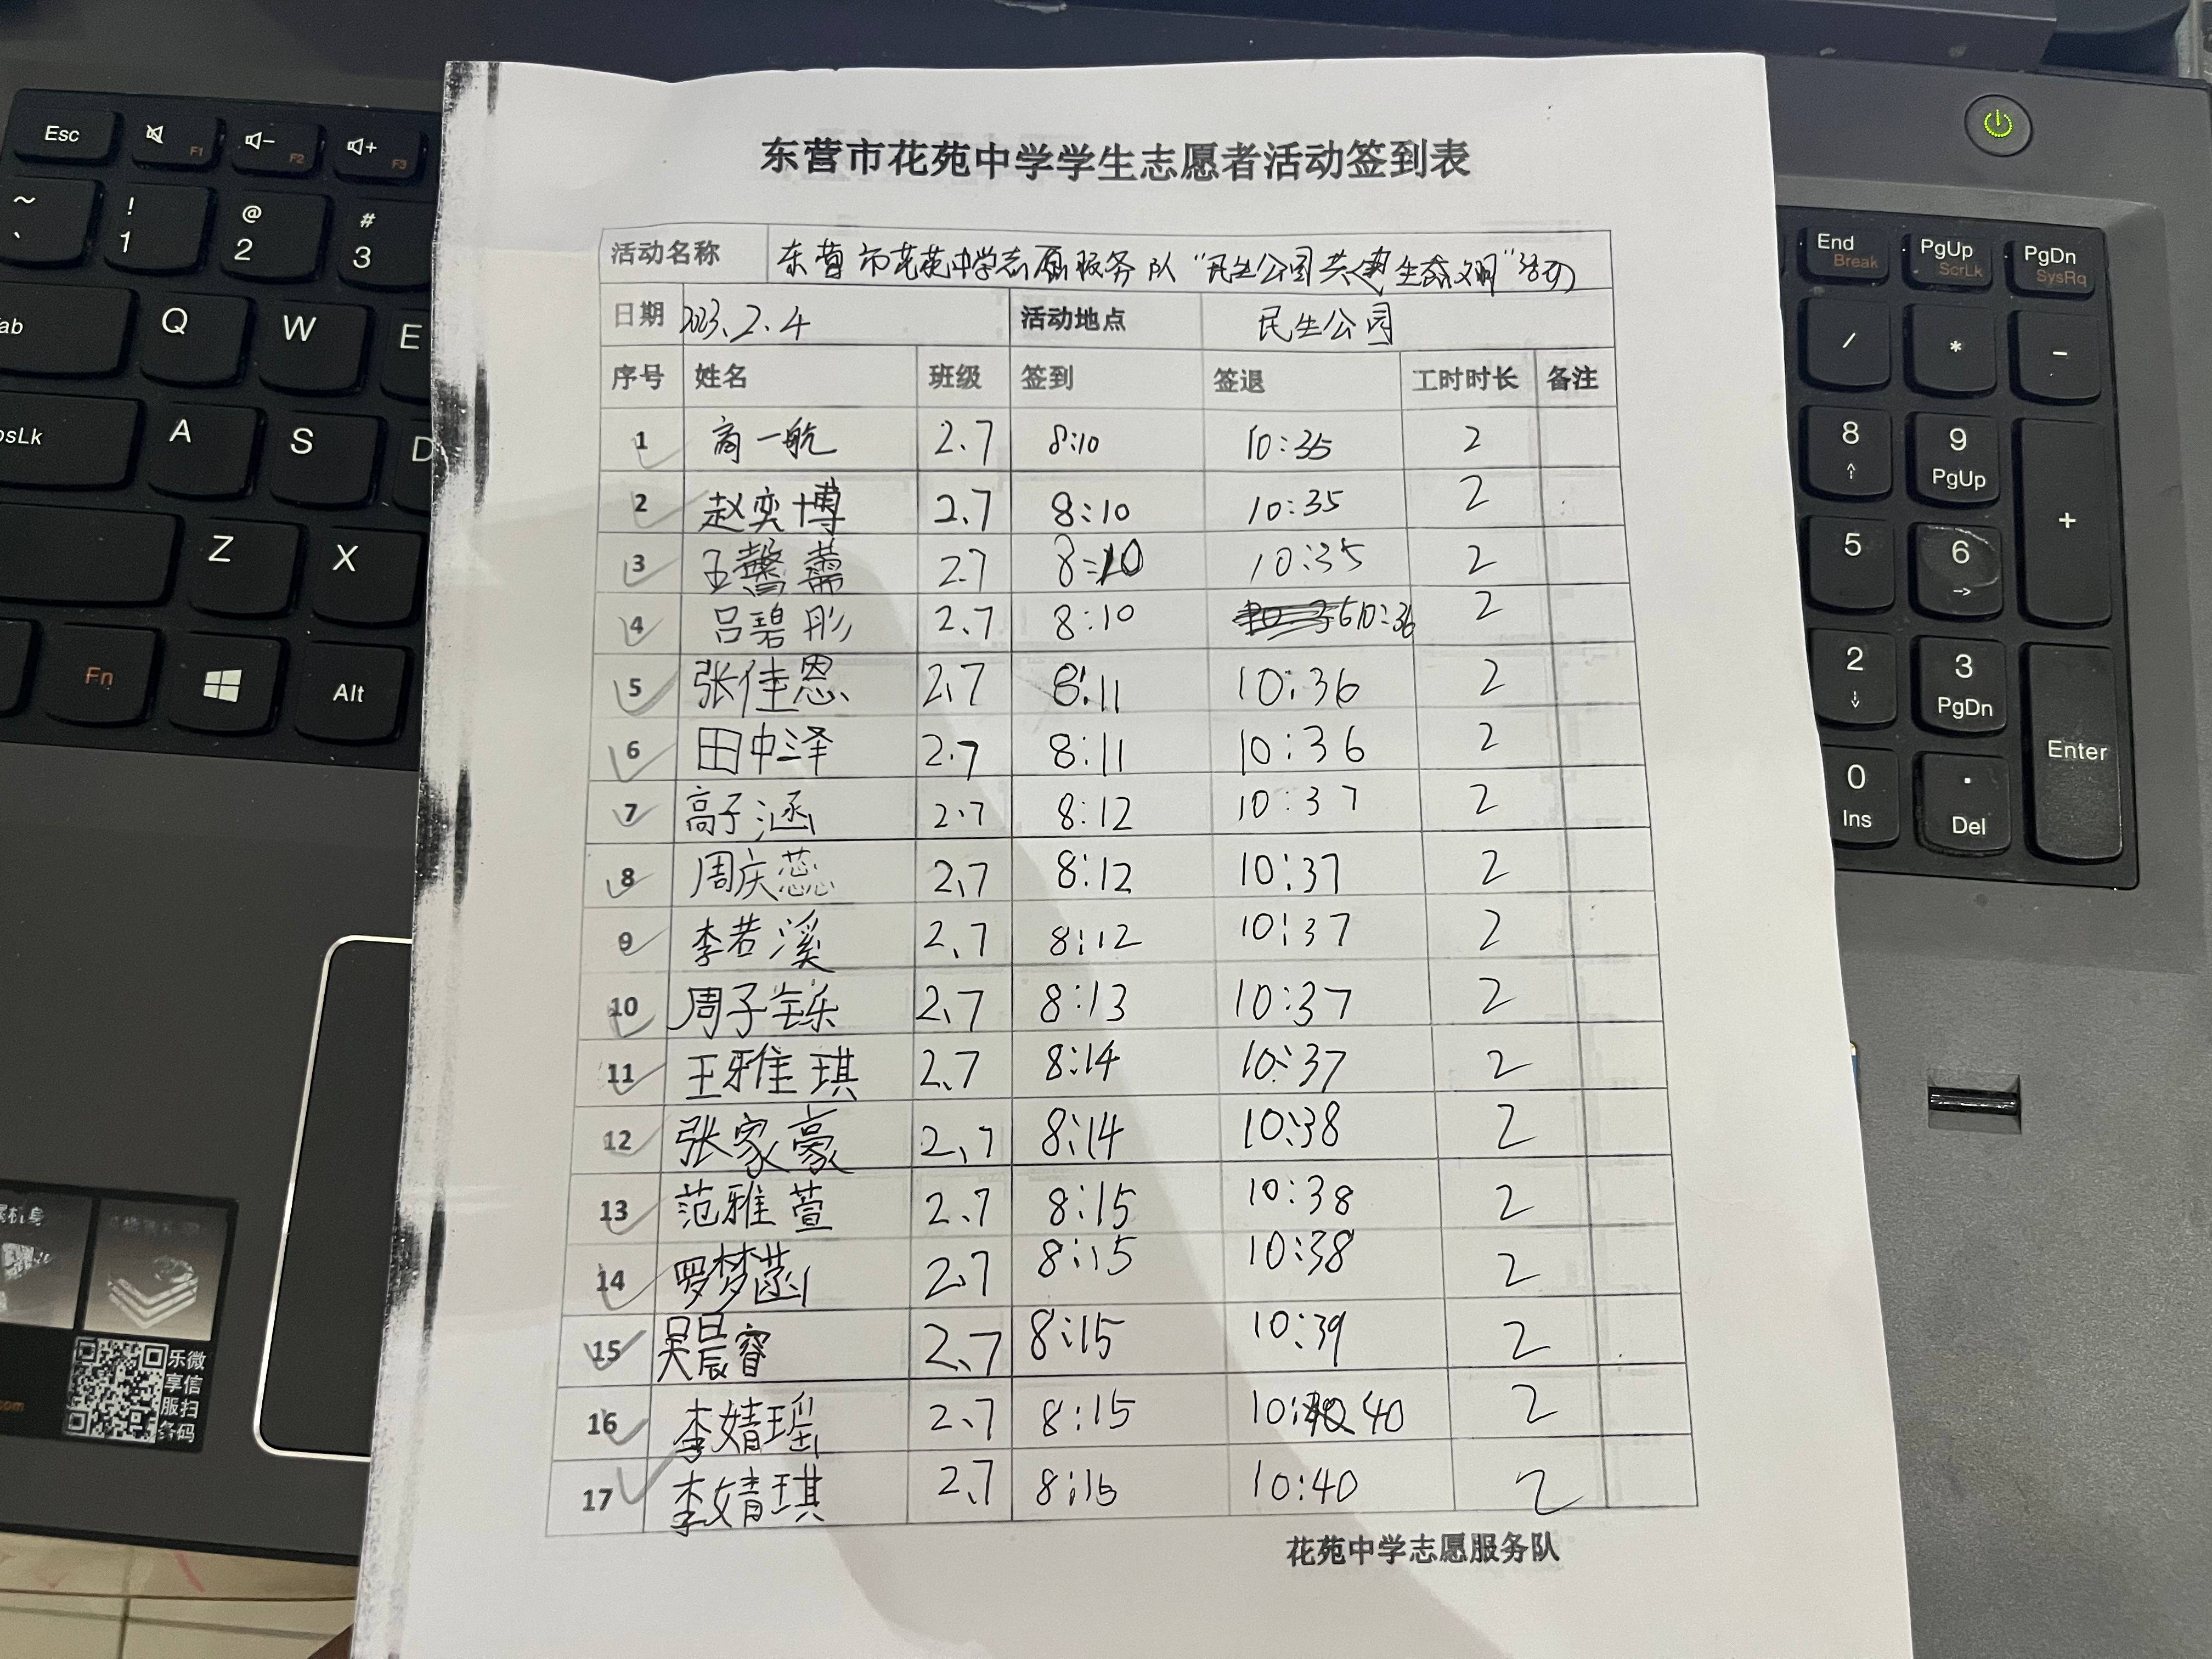 东营市花苑中学学生志愿者活动签到表
活动名称 东营市花苑中学志愿服务队“民生公园共建生态文明”活动
日期 2023.2.4 活动地点 民生公园
序号 姓名 班级 签到 签退 工时时长 备注
1 商一航 2.7 8:10 10:35 2
2 赵奕博 2.7 8:10 10:35 2
3 王馨蕾 2.7 8:10 10:35 2
4 吕碧彤 2.7 8:10 10:36 2
5 张佳恩 2.7 8:11 10:36 2
6 田中泽 2.7 8:11 10:36 2
7 高子涵 2.7 8:12 10:37 2
8 周庆蕊 2.7 8:12 10:37 2
9 李若溪 2.7 8:12 10:37 2
10 周子铄 2.7 8:13 10:37 2
11 王雅琪 2.7 8:14 10:37 2
12 张家豪 2.7 8:14 10:38 2
13 范雅萱 2.7 8:15 10:38 2
14 罗梦菡 2.7 8:15 10:38 2
15 吴晨睿 2.7 8:15 10:39 2
16 李婧瑶 2.7 8:15 10:40 2
17 李婧琪 2.7 8:15 10:40 2
花苑中学志愿服务队
Esc F1 F2 F3
~ ` ! 1 @ 2 # 3
Q W E
A S D
Z X
Fn Alt
End Break PgUp ScrLk PgDn SysRq
/ * -
8 9 PgUp +
5 6
2 3 PgDn Enter
0 Ins . Del
乐微
享信
服扫
务码